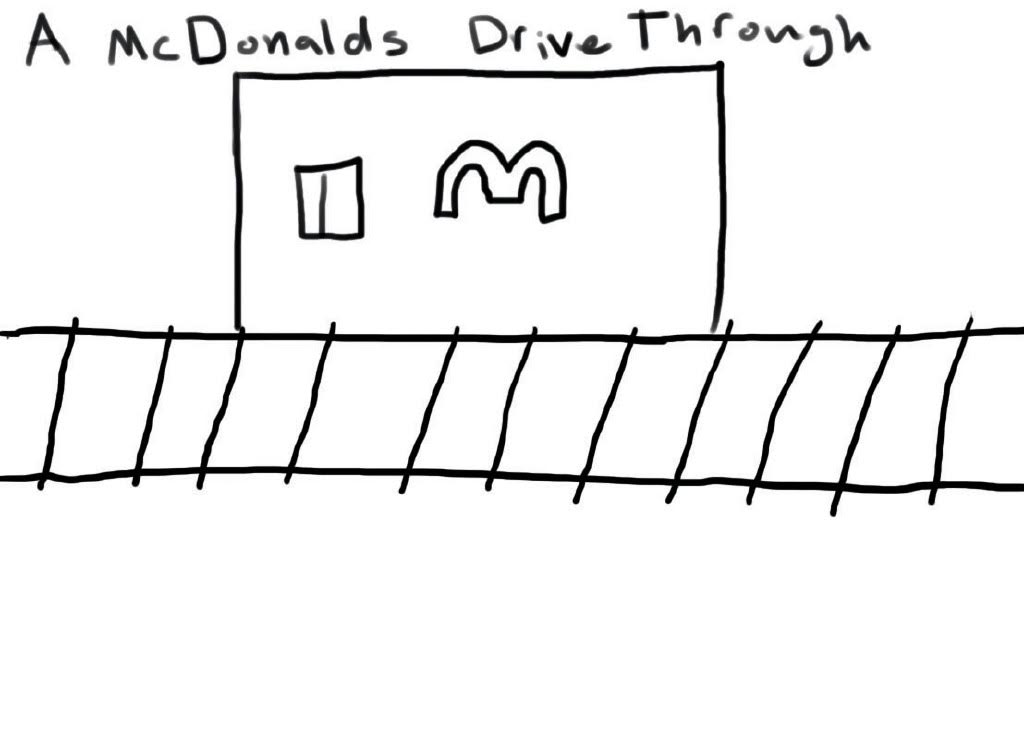 A McDonalds Drive Through
M